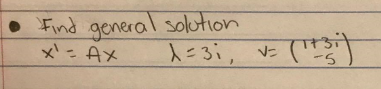 • Find general solution
x' = Ax λ = 3i, v = (1+3i
-5)